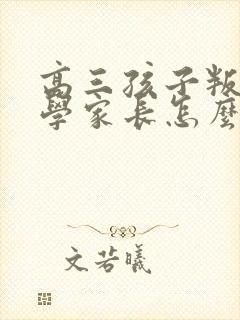 高三孩子叛
學家長怎麼
文若曦